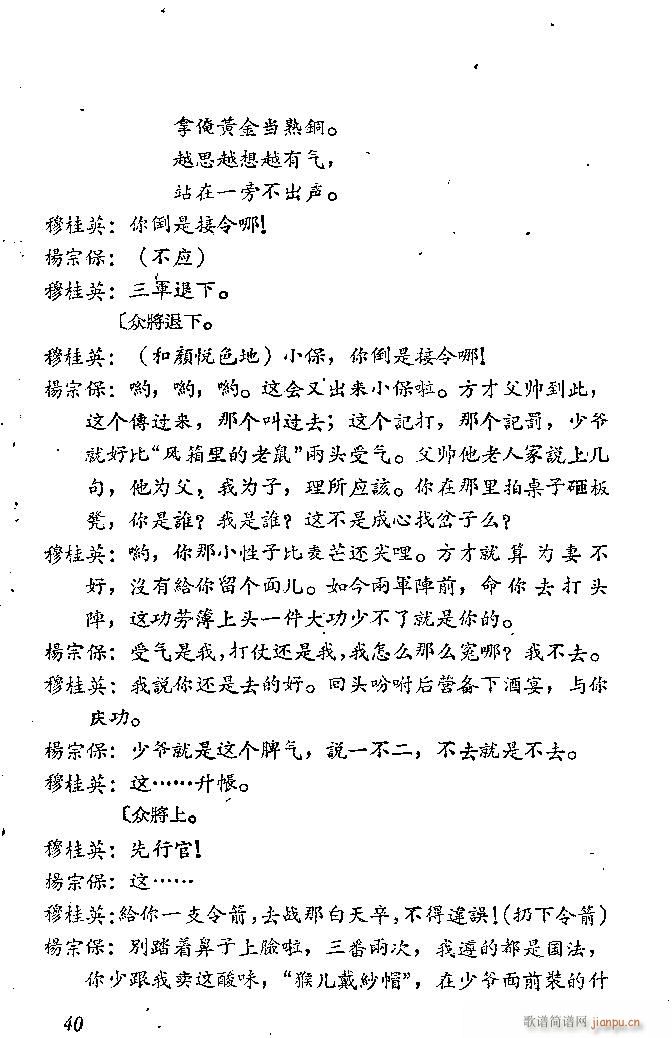 拿俺黃金当熟銅。
越思越想越有气，
站在一旁不出声。
穆桂英：你倒是接令哪！
楊宗保：（不应）
穆桂英：三軍退下。
〔众將退下。
穆桂英：（和顏悦色地）小保，你倒是接令哪！
楊宗保：喲，喲，喲。这会又出来小保啦。方才父帅到此，
这个傳过来，那个叫过去；这个記打，那个記罰，少爷
就好比“风箱里的老鼠”兩头受气。父帅他老人家說上几
句，他为父，我为子，理所应該。你在那里拍桌子砸板
凳，你是誰？我是誰？这不是成心找岔子么？
穆桂英：喲，你那小性子比麦芒还尖哩。方才就算为妻不
好，沒有給你留个面儿。如今兩軍陣前，命你去打头
陣，这功劳薄上头一件大功少不了就是你的。
楊宗保：受气是我，打仗还是我，我怎么那么寃哪？我不去。
穆桂英：我說你还是去的好。回头吩咐后营备下酒宴，与你
庆功。
楊宗保：少爷就是这个脾气，説一不二，不去就是不去。
穆桂英：这……升帳。
〔众將上。
穆桂英：先行官！
楊宗保：这……
穆桂英：給你一支令箭，去战那白天卒，不得違誤！（扔下令箭）
楊宗保：别踏着鼻子上臉啦，三番兩次，我遵的都是国法，
你少跟我卖这酸味，“猴儿戴紗帽”，在少爷面前裝的什
40
歌谱简谱网 jianpu.cn